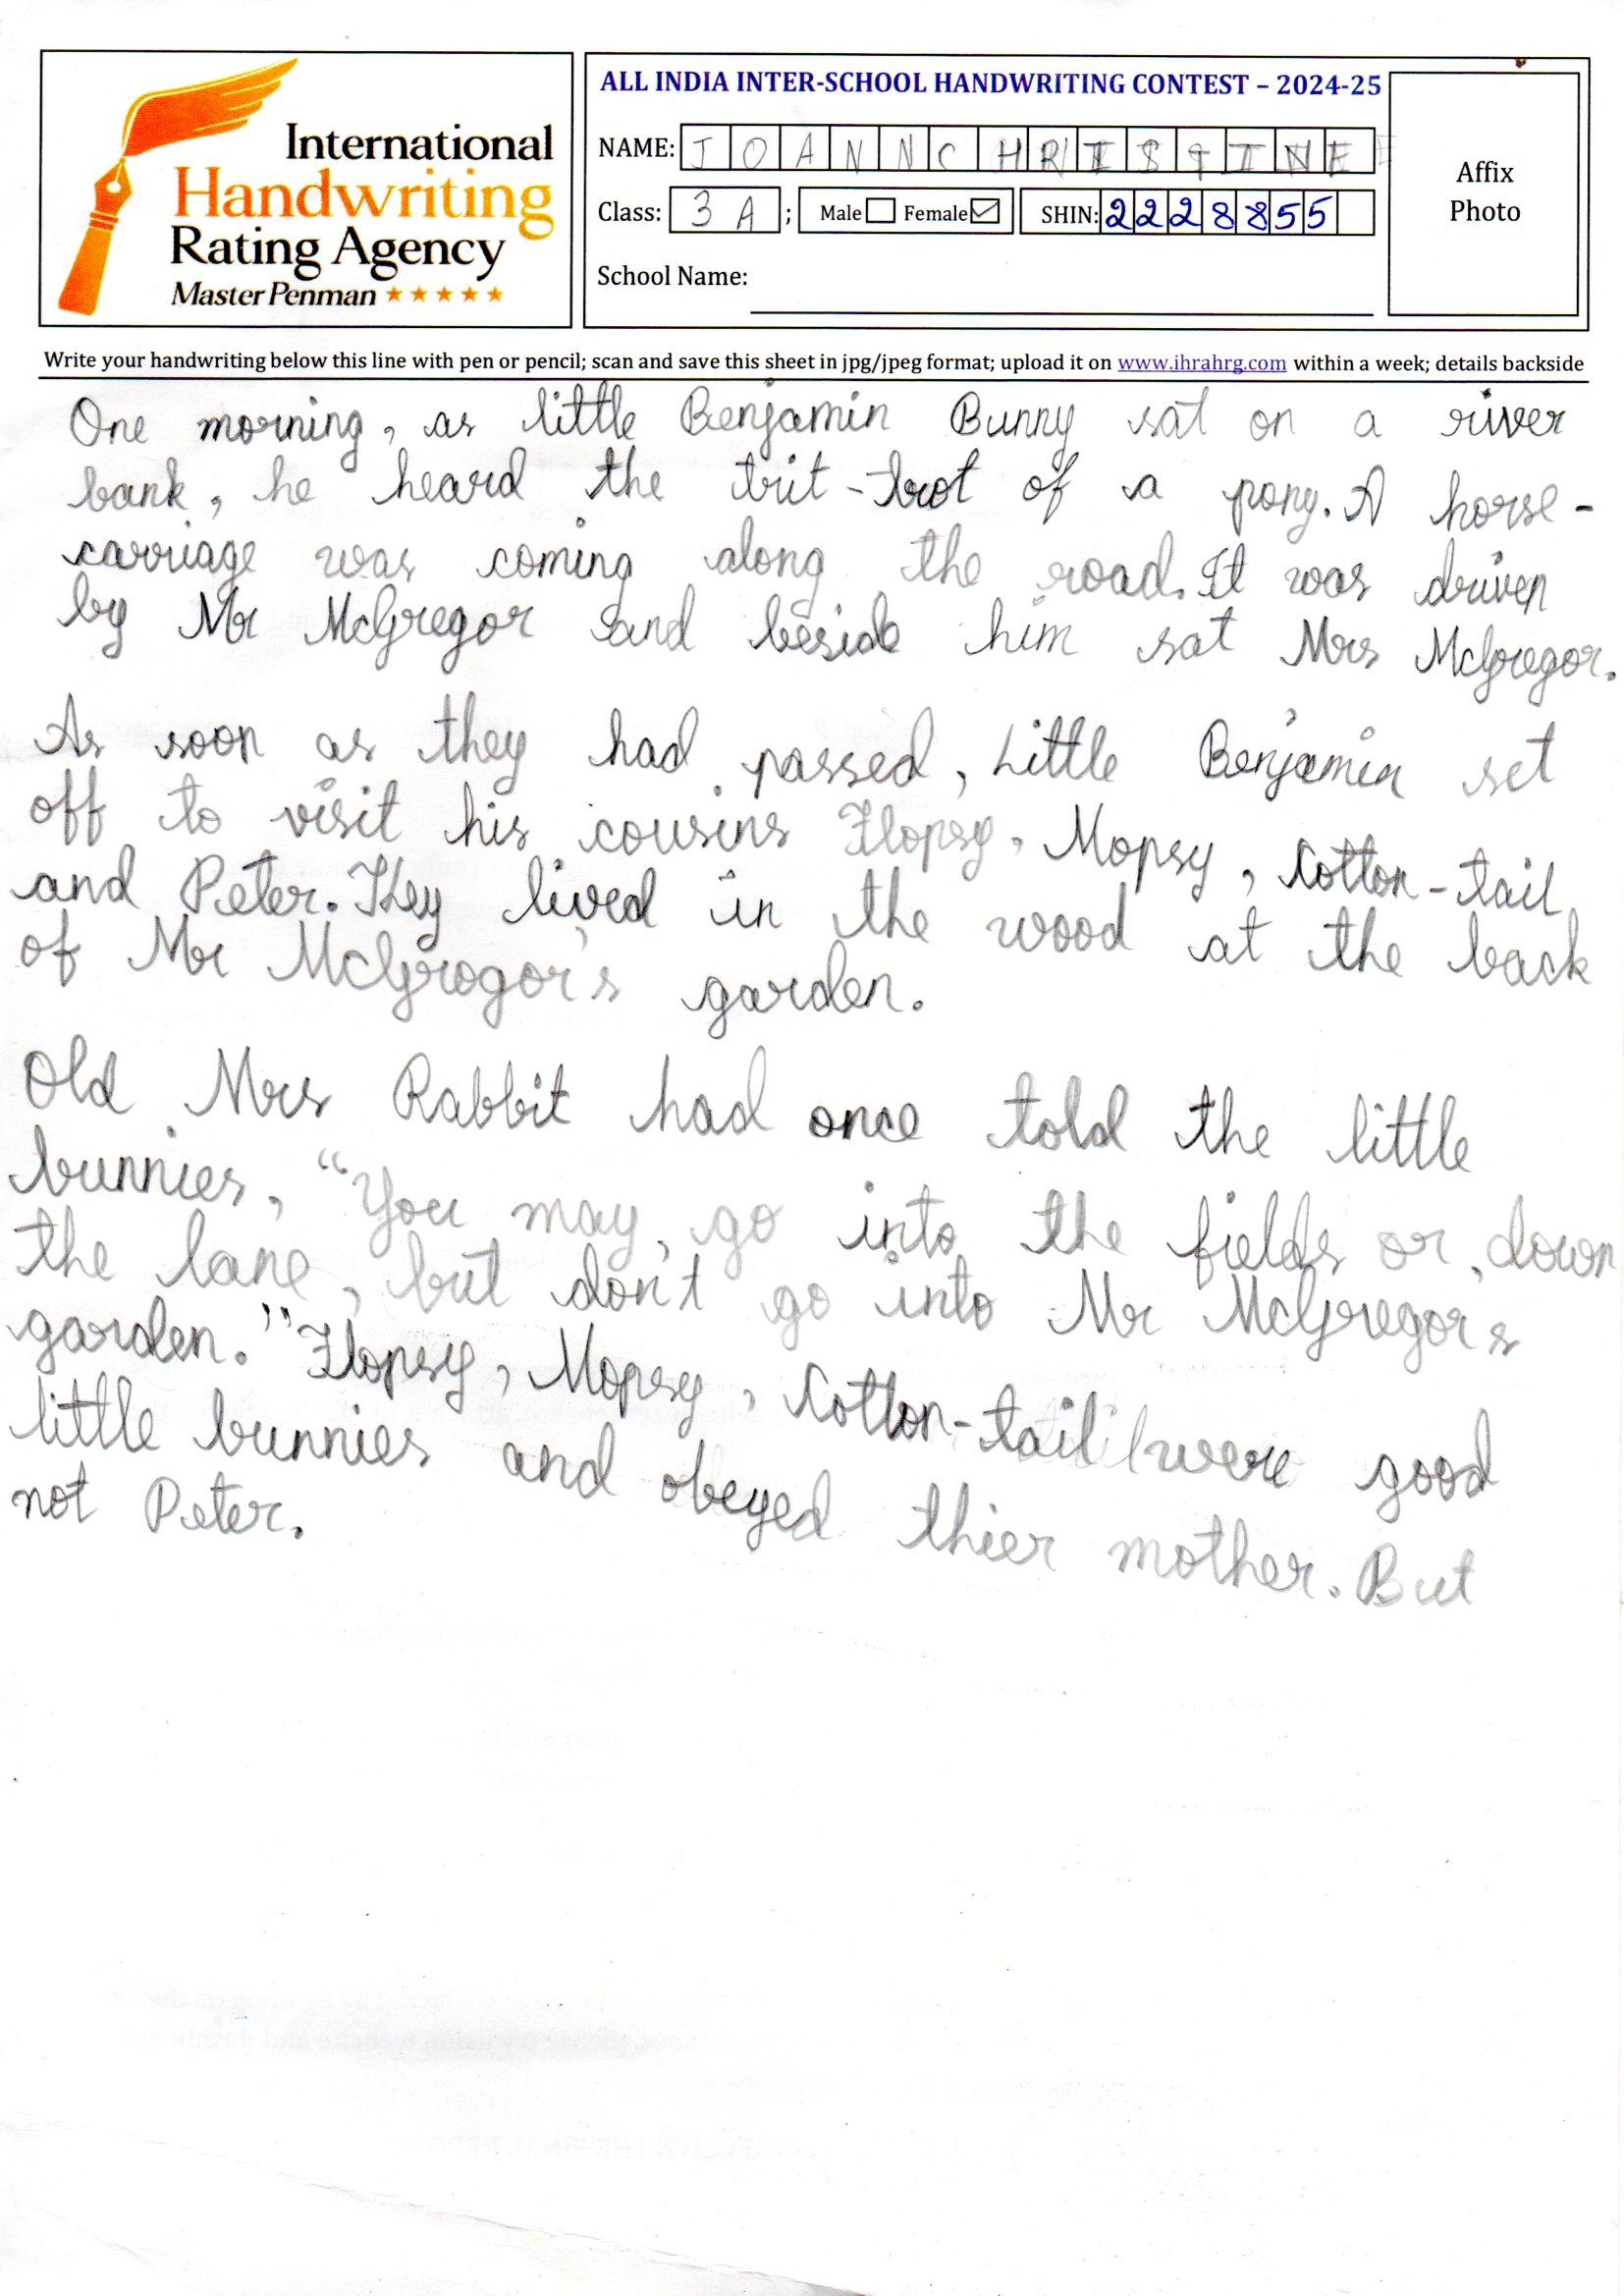 International
Handwriting
Rating Agency
Master Penman
ALL INDIA INTER-SCHOOL HANDWRITING CONTEST – 2024-25
NAME: JOANNCHRISTINE
Class: 3 A ; Male Female SHIN: 2228855
School Name:
Affix
Photo
Write your handwriting below this line with pen or pencil; scan and save this sheet in jpg/jpeg format; upload it on www.ihrahrg.com within a week; details backside
One morning, as little Benjamin Bunny sat on a river
bank, he heard the trit-trot of a pony. A horse-
carriage was coming along the road. It was driven
by Mr McGregor and beside him sat Mrs McGregor.
As soon as they had passed, Little Benjamin set
off to visit his cousins Flopsy, Mopsy, Cotton-tail
and Peter. They lived in the wood at the back
of Mr McGrogor's garden.
Old Mrs Rabbit had once told the little
bunnies, "You may go into the fields or down
the lane, but don't go into Mr McGregor's
garden." Flopsy, Mopsy, Cotton-tail were good
little bunnies and obeyed thier mother. But
not Peter.